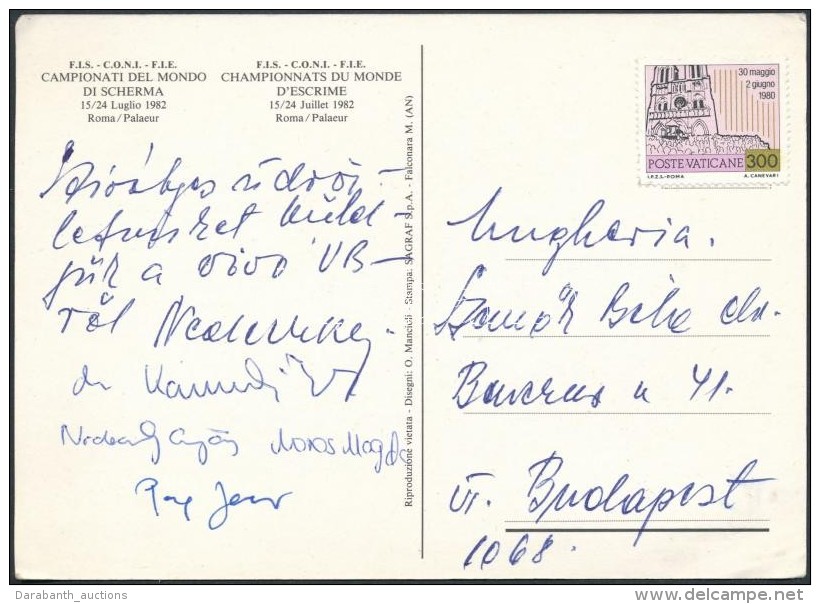 F.I.S. - C.O.N.I. - F.I.E.
CAMPIONATI DEL MONDO
DI SCHERMA
15/24 Luglio 1982
Roma / Palaeur
F.I.S. - C.O.N.I. - F.I.E.
CHAMPIONNATS DU MONDE
D'ESCRIME
15/24 Juillet 1982
Roma / Palaeur
Szivélyes üdvöz-
letünket küld-
jük a vivó VB-
ről
dr
Maros Magda
Jenő
Reproduzione vietata - Disegni: O. Mancioli - Stampa: SAGRAF S.p.A. - Falconara M. (AN)
30 maggio
2 giugno
1980
POSTE VATICANE 300
I.P.Z.S.-ROMA A. CANEVARI
Ungheria.
Béla
u 41.
VI. Budapest
1068.
Darabanth_auctions
delcampe.net